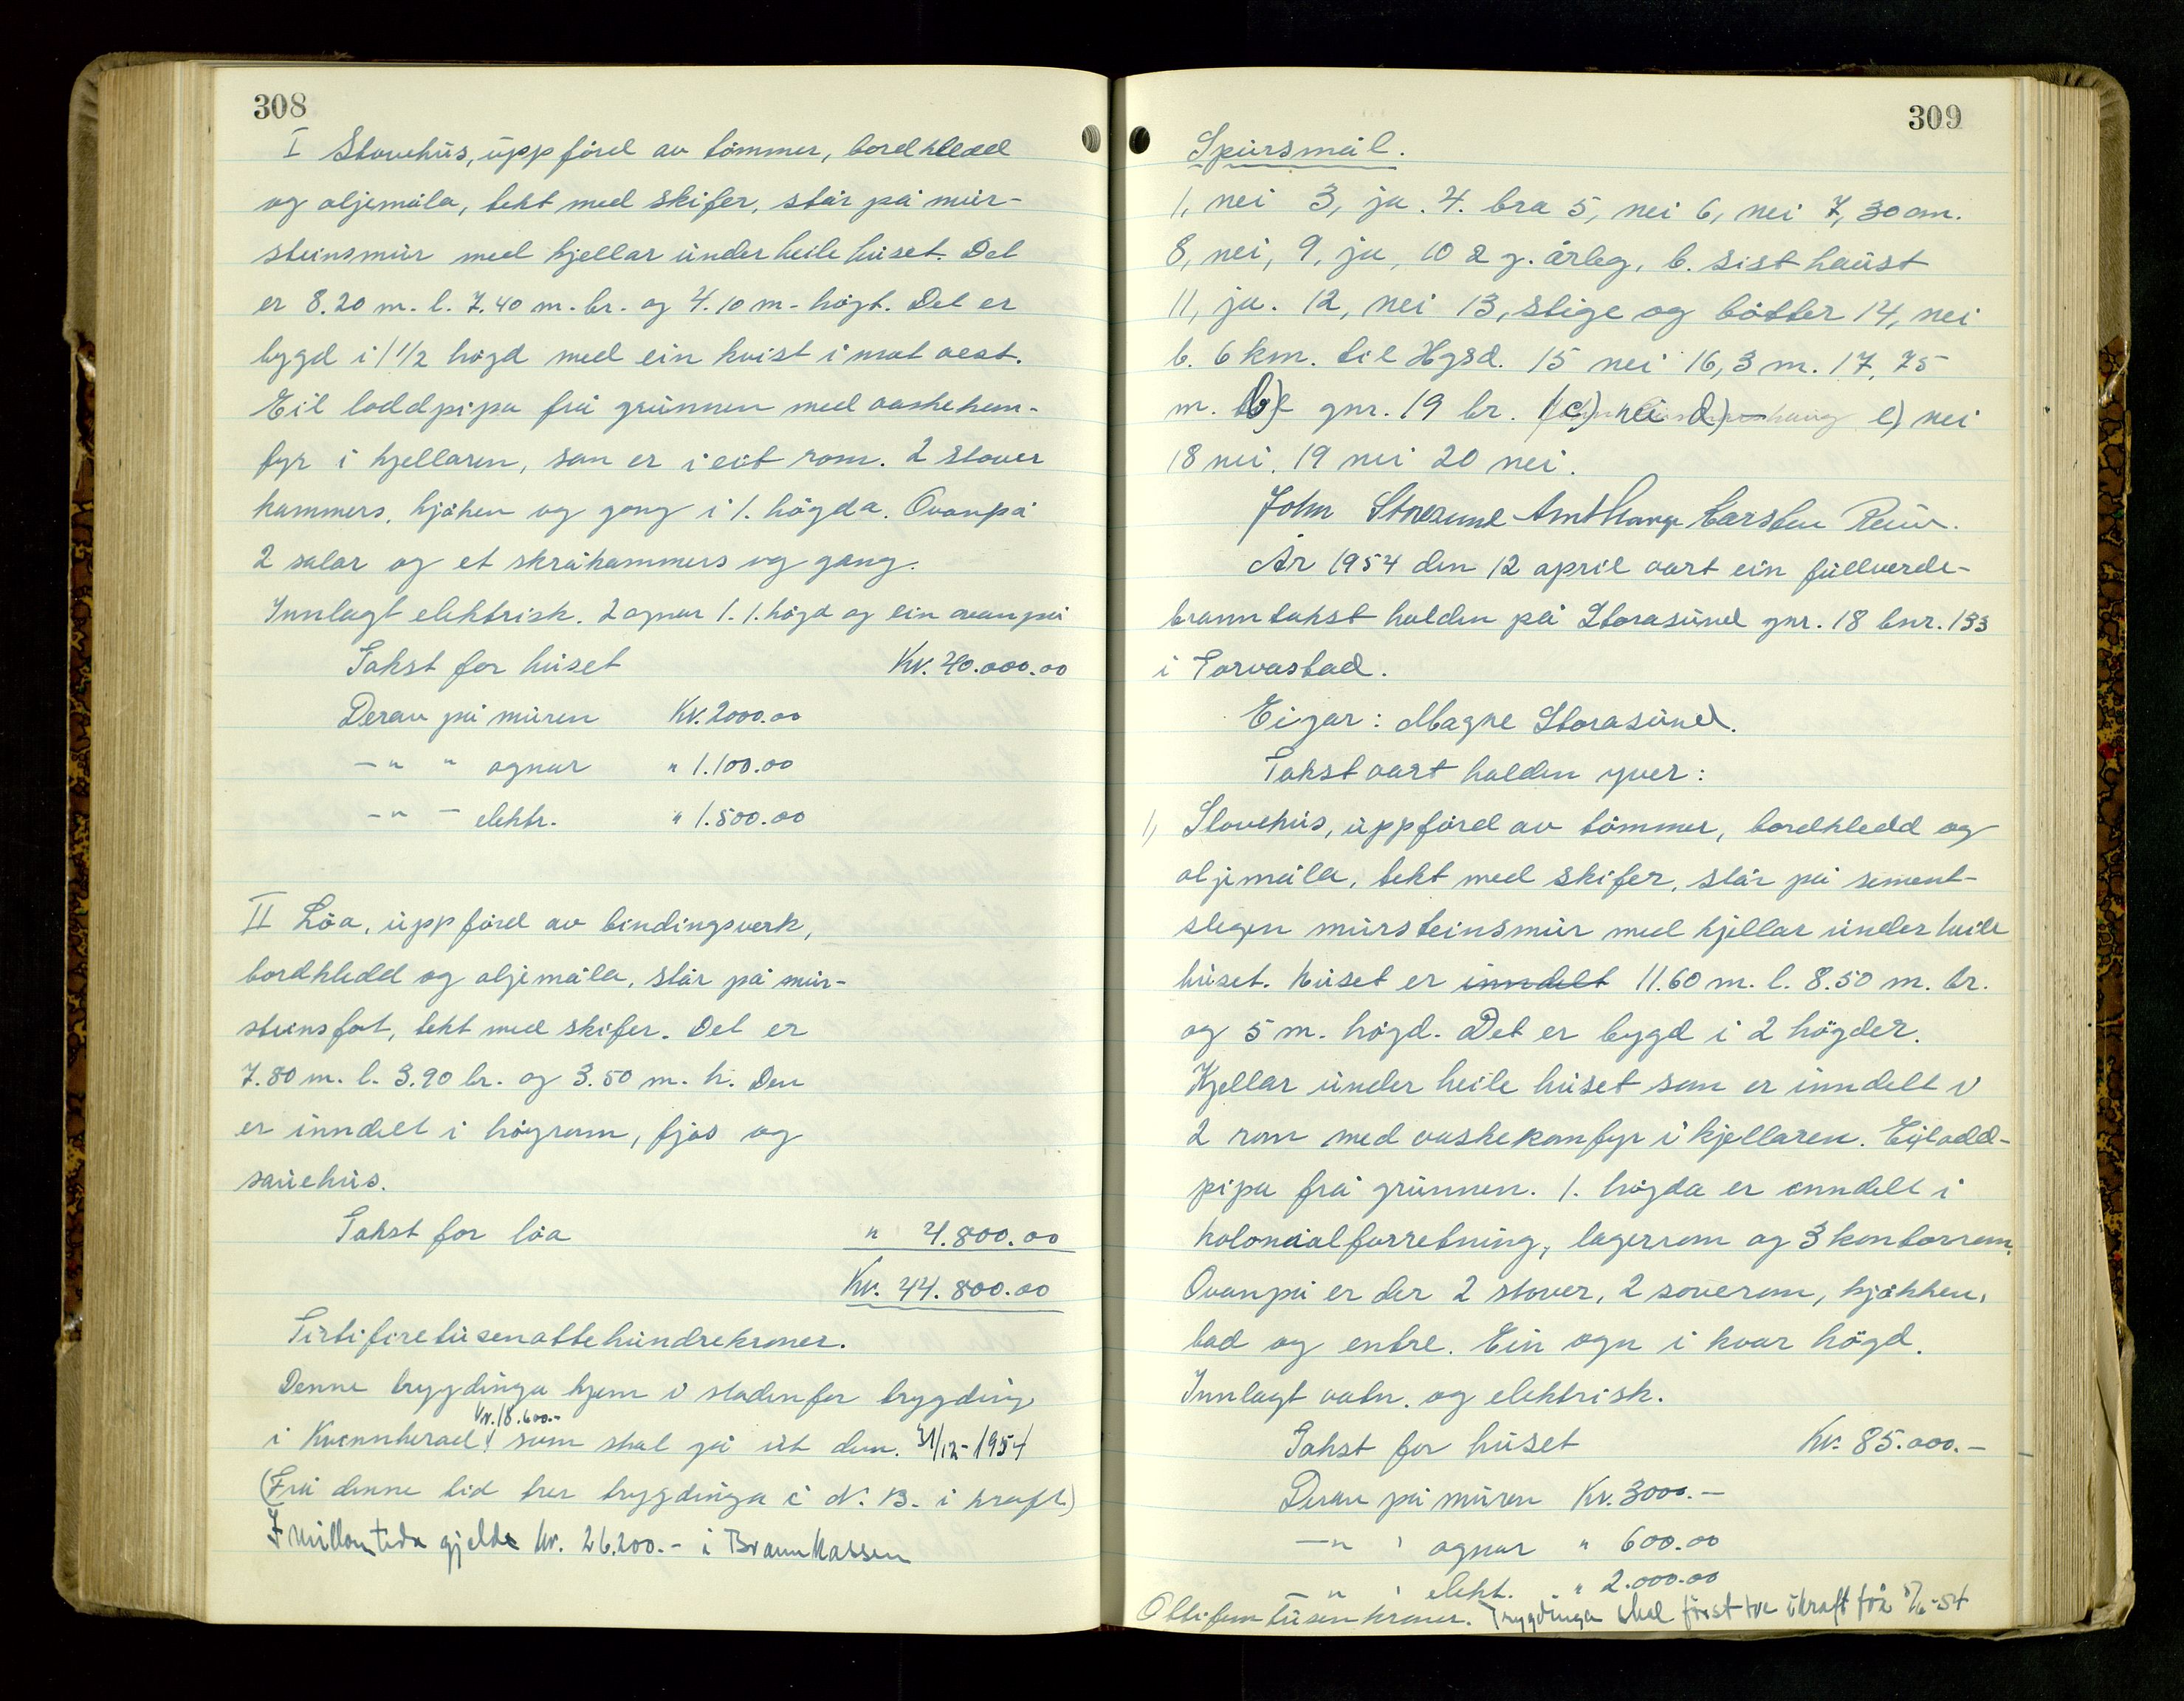 308
I Stovehus, uppförd av tömmer, bordkledd
og oljemåla, tekt med skifer, står på mur-
steinsmur med kjellar under heile huset. Det
er 8.20 m. l. 7.40 m. br. og 4.10 m. högt. Det er
bygd i 1 1/2 högd med ein kvist imot vest.
Eit loddpipa frå grunnen med vaskekom-
fyr i kjellaren, som er i eit rom. 2 stover
kammers, kjöken og gong i 1. högda. Ovanpå
2 salar og et skråkammers og gang.
Innlagt elektrisk. 2 ognar i 1. högd og ein ovanpå
Takst for huset Kr. 40.000.00
Derav på muren Kr. 2000.00
— " " ognar " 1.100.00
— " — elektr. " 1.500.00
II Löa, uppförd av bindingsverk,
bordkledd og oljemåla, står på mur-
steinsfot, tekt med skifer. Det er
7.80 m. l. 3.90 br. og 3.50 m. h. Den
er inndelt i höyrom, fjös og
sauehus.
Takst for löa " 4.800.00
Kr. 44.800.00
Förtifiretusenåttehundrekroner.
Denne trygdinga kjem i stadenfor trygding
Kr. 18.600.-
i Kvinnherad som skal gå ut den. 31/12-1954
(Frå denne tid trer trygdinga i N. B. i kraft)
I millomtida gjelde kr. 26.200.- i Brannkassen
309
Spursmål.
1, nei 3, ja. 4. bra 5, nei 6, nei 7, 30 cm.
8, nei, 9, ja, 10 2 g. årleg, b. sist haust
11, ja. 12, nei 13, stige og bötter 14, nei
b. 6 km. til Hgsd. 15 nei 16, 3 m. 17, 75
m. b) gnr. 19 br. c) nei d) — e) nei
18 nei. 19 nei 20 nei.
John Storesund Carsten
År 1954 den 12 april vart ein fullverde-
branntakst halden på Storasund gnr. 18 bnr. 133
i Torvastad.
Eigar: Magne Storasund.
Takst vart halden yver:
1, Stovehus, uppförd av tömmer, bordkledd og
oljemåla, tekt med skifer, står på sement-
slegen mursteinsmur med kjellar under heile
huset. Huset er inndelt 11.60 m. l. 8.50 m. br.
og 5 m. högd. Det er bygd i 2 högder.
Kjellar under heile huset som er inndelt i
2 rom med vaskekomfyr i kjellaren. Ei lodd-
pipa frå grunnen. 1. högda er inndelt i
kolonialforretning, lagerrom og 3 kontorrom.
Ovanpå er der 2 stover, 2 soverom, kjökken,
bad og entre. Ein ogn i kvar högd.
Innlagt vatn. og elektrisk.
Takst for huset Kr. 85.000.-
Derav på muren Kr. 3000.-
— " ' ognar " 600.00
— " ' elekt. " 2.000.00
Ottifemtusenkroner. Trygdinga skal först tre ikraft frå